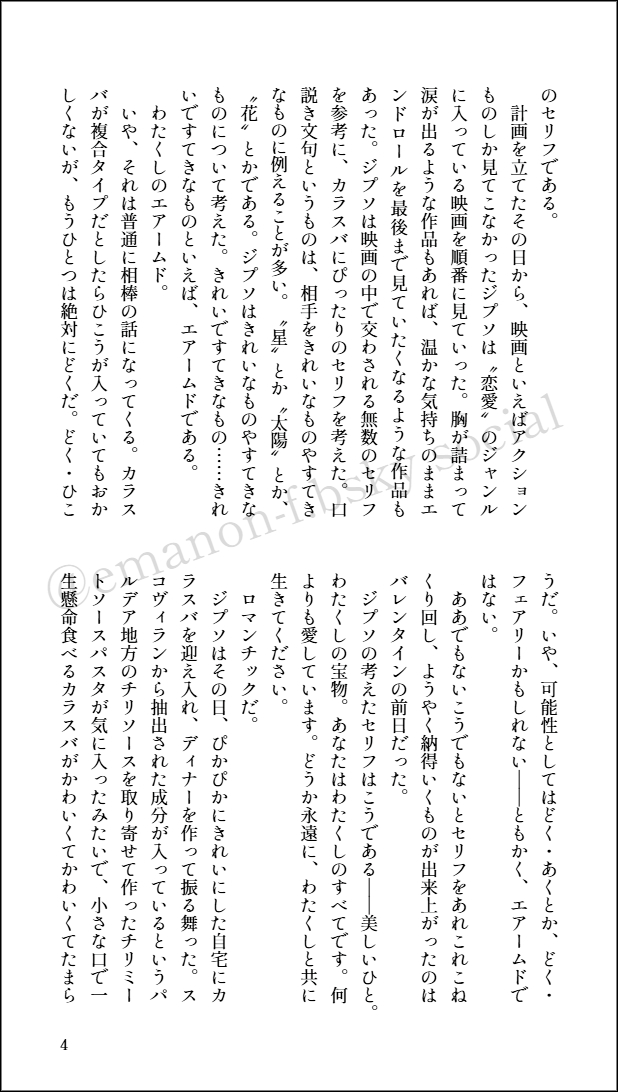 のセリフである。
　計画を立てたその日から、映画といえばアクション
ものしか見てこなかったジプソは〝恋愛〟のジャンル
に入っている映画を順番に見ていった。胸が詰まって
涙が出るような作品もあれば、温かな気持ちのままエ
ンドロールを最後まで見ていたくなるような作品も
あった。ジプソは映画の中で交わされる無数のセリフ
を参考に、カラスバにぴったりのセリフを考えた。口
説き文句というものは、相手をきれいなものやすてき
なものに例えることが多い。〝星〟とか〝太陽〟とか、
〝花〟とかである。ジプソはきれいなものやすてきな
ものについて考えた。きれいですてきなもの……きれ
いですてきなものといえば、エアームドである。
　わたくしのエアームド。
　いや、それは普通に相棒の話になってくる。カラス
バが複合タイプだとしたらひこうが入っていてもおか
しくないが、もうひとつは絶対にどくだ。どく・ひこ
うだ。いや、可能性としてはどく・あくとか、どく・
フェアリーかもしれない――ともかく、エアームドで
はない。
　ああでもないこうでもないとセリフをあれこれこね
くり回し、ようやく納得いくものが出来上がったのは
バレンタインの前日だった。
　ジプソの考えたセリフはこうである――美しいひと。
わたくしの宝物。あなたはわたくしのすべてです。何
よりも愛しています。どうか永遠に、わたくしと共に
生きてください。
　ロマンチックだ。
　ジプソはその日、ぴかぴかにきれいにした自宅にカ
ラスバを迎え入れ、ディナーを作って振る舞った。ス
コヴィランから抽出された成分が入っているというパ
ルデア地方のチリソースを取り寄せて作ったチリミー
トソースパスタが気に入ったみたいで、小さな口で一
生懸命食べるカラスバがかわいくてかわいくてたまら
4
@emanon-f.bsky.social